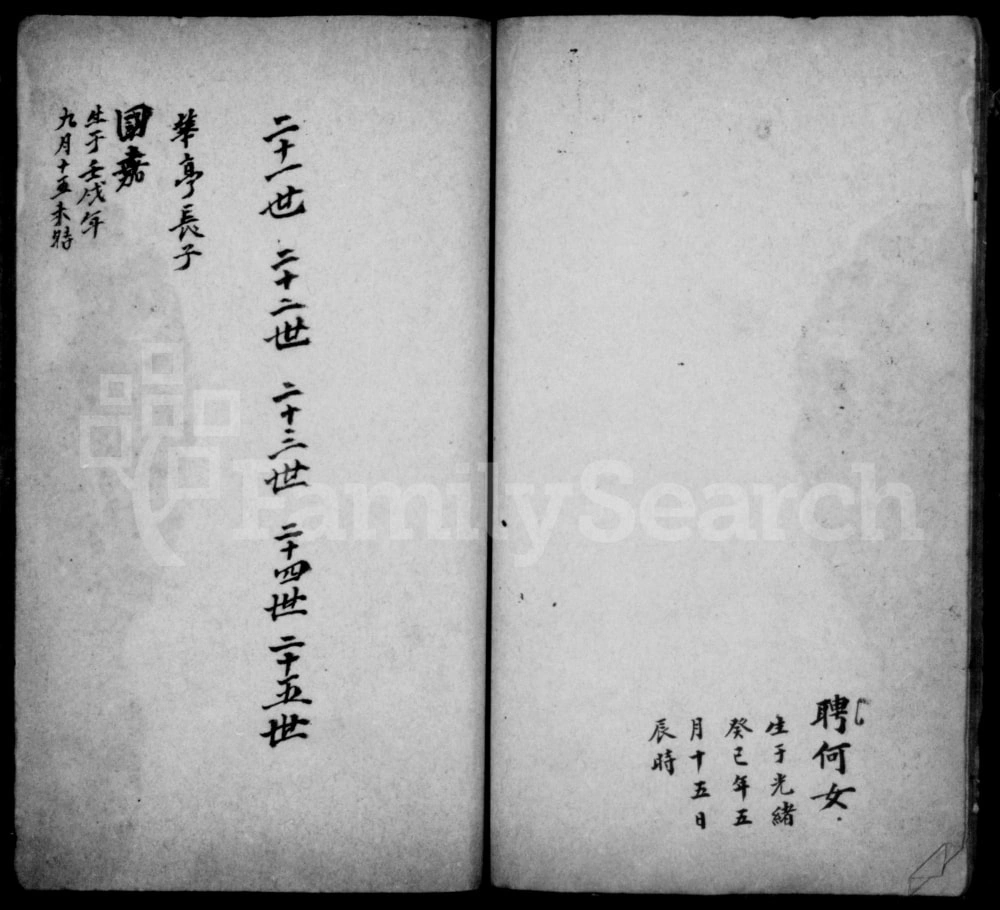 聘何女
生于光緒
癸巳年五
月十五日
辰時
二十一世 二十二世 二十三世 二十四世 二十五世
華亭長子
國嘉
生于壬戌年
九月十五未時
FamilySearch